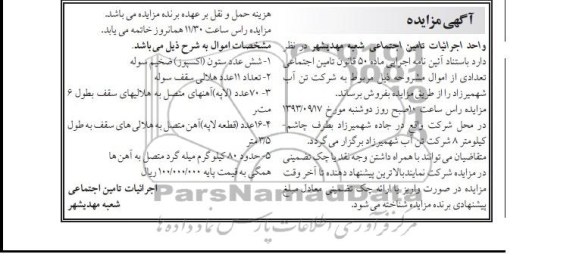 آگهی مزایده
واحد اجرائیات تامین اجتماعی شعبه مهدیشهر در نظر
دارد باستناد آئین نامه اجرایی ماده ۵۰ قانون تامین اجتماعی
تعدادی از اموال مشروحه ذیل مربوط به شرکت تن آب
شهمیرزاد را از طریق مزایده بفروش برساند.
مزایده راس ساعت ۱۰صبح روز دوشنبه مورخ ۱۳۹۳/۰۹/۱۷
در محل شرکت واقع در جاده شهمیرزاد بطرف چاشم-
کیلومتر ۸ شرکت تن آب شهمیرزاد برگزار می گردد.
متقاضیان می توانند با همراه داشتن وجه نقد یا چک تضمینی
در مزایده شرکت نمایند بالاترین پیشنهاد دهنده تا آخر وقت
مزایده در صورت واریز یا ارائه چک تضمینی معادل مبلغ
پیشنهادی برنده مزایده شناخته می شود.
هزینه حمل و نقل بر عهده برنده مزایده می باشد.
مزایده راس ساعت ۱۱/۳۰ همانروز خاتمه می یابد.
مشخصات اموال به شرح ذیل می باشد.
۱- شش عدد ستون (اکسپوز) ضخیم سوله
۲- تعداد ۱۱عدد هلالی سقف سوله
۳- ۷۰عدد (لاپه)آهنهای متصل به هلالیهای سقف بطول ۶
متر
۴-۱۶عدد (قطعه لاپه)آهن متصل به هلالی های سقف به طول
۳/۵متر
۵- حدود ۸۰ کیلوگرم میله گرد متصل به آهن ها
همگی به قیمت پایه ۱۰۰/۰۰۰/۰۰۰ ریال
اجرائیات تامین اجتماعی
شعبه مهدیشهر
ParsNamadData
مرکز فرآوری اطلاعات پارس نماد داده ها